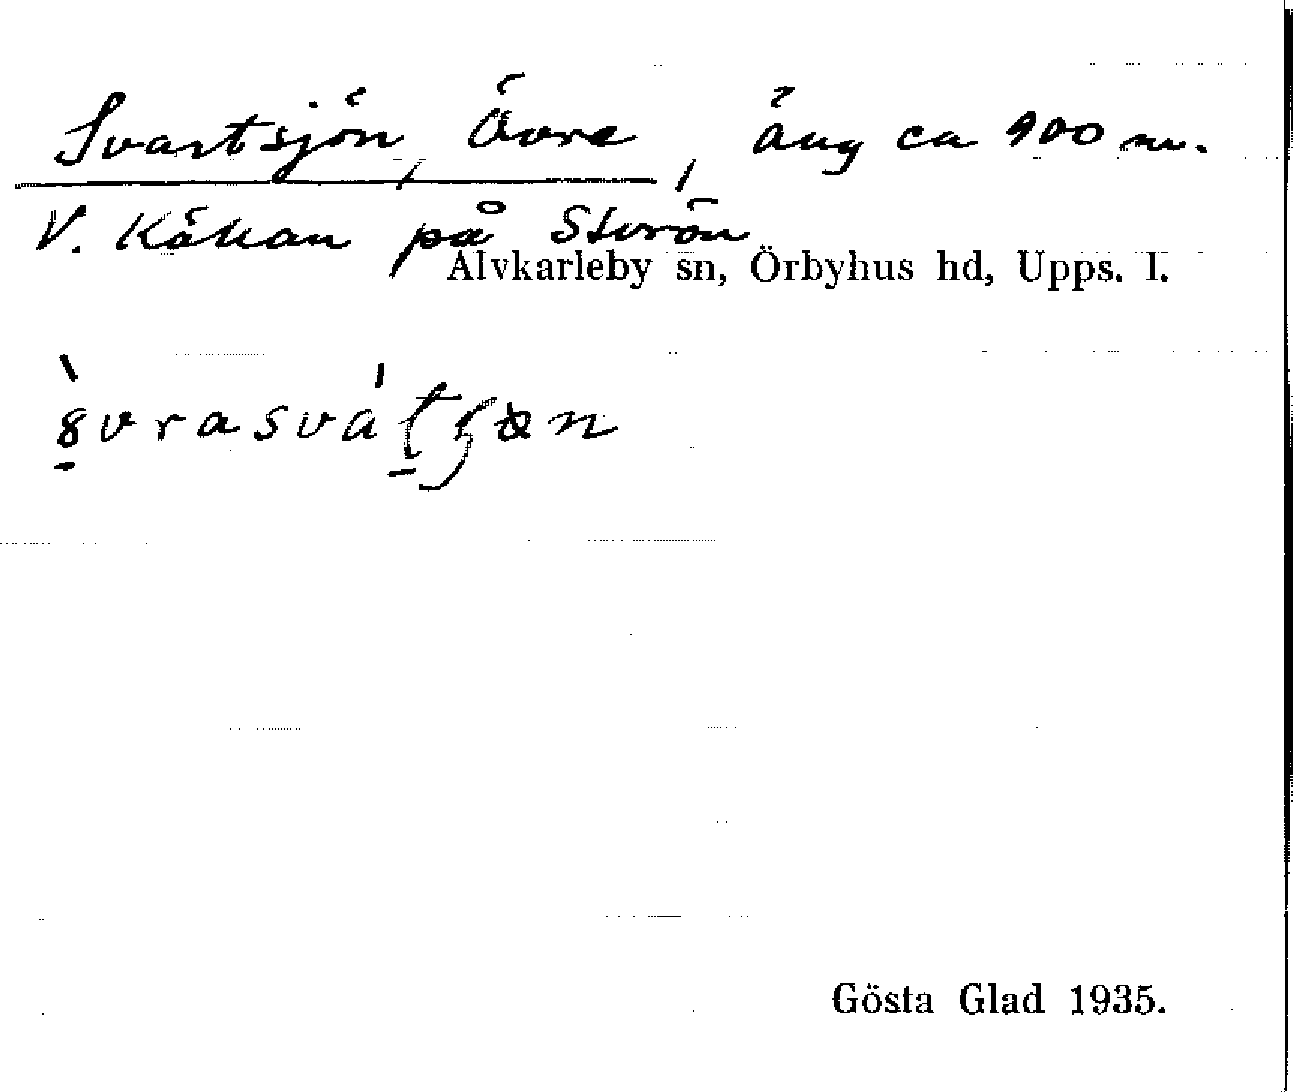 Svartsjön, Övre, äng ca 900 m.
V. Kåkan på Storön
Älvkarleby sn, Örbyhus hd, Upps. l.
Gösta Glad 1935.